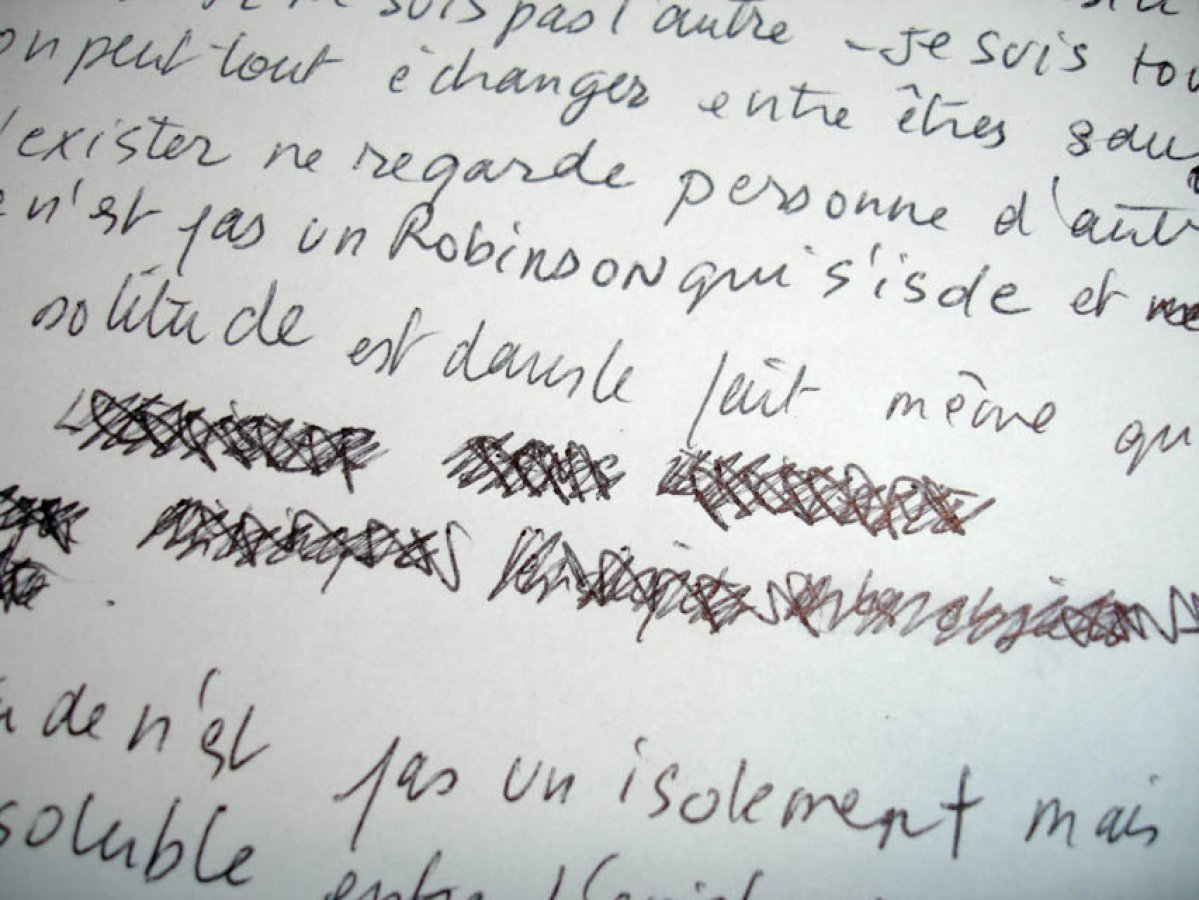 suis pas l'autre - Je suis tou
on peut tout échanger entre êtres sau
l'exister ne regarde personne d'autr
e n'est pas un Robinson qui s'isole et
solitude est dans le fait même qu
u de n'est pas un isolement mais
soluble entre